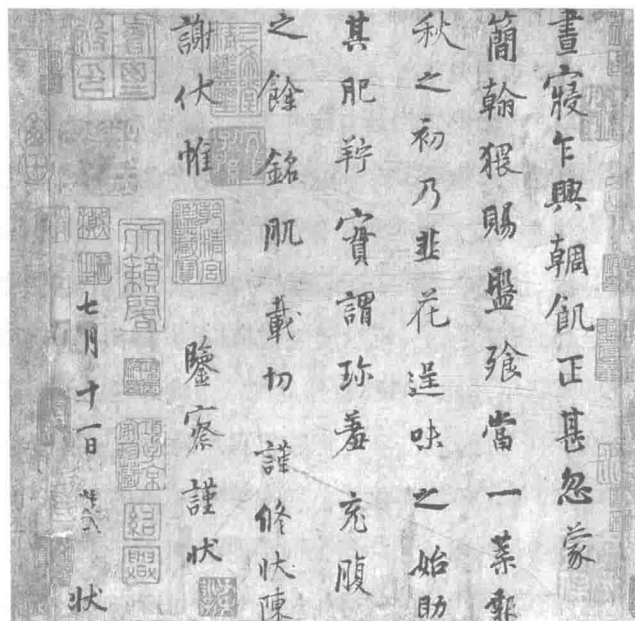 晝寢乍興輖飢正甚忽蒙
簡翰猥賜盤飧當一葉報
秋之初乃韭花逞味之始助
其肥羜實謂珍羞充腹
之餘銘肌載切謹修狀陳
謝伏惟 鑒察謹狀
七月十一日 狀
天籟閣
項子京家珍藏
紹興